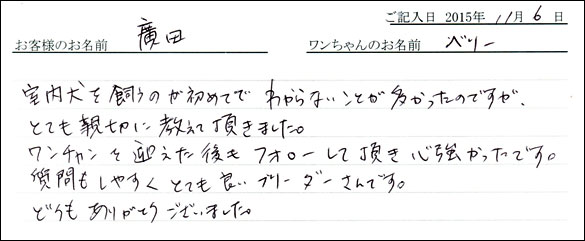 ご記入日 2015年 11月 6日
お客様のお名前 廣田 ワンちゃんのお名前 ベリー
室内犬を飼うのが初めてで わからないことが多かったのですが、
とても親切に教えて頂きました。
ワンチャンを迎えた後もフォローして頂き心強かったです。
質問もしやすくとても良いブリーダーさんです。
どうもありがとうございました。